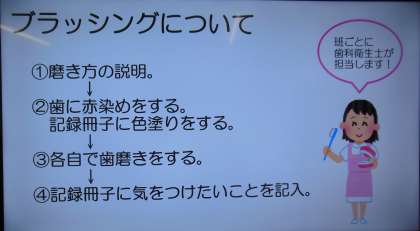 ブラッシングについて
班ごとに
歯科衛生士が
担当します！
①磨き方の説明。
↓
②歯に赤染めをする。
記録冊子に色塗りをする。
↓
③各自で歯磨きをする。
↓
④記録冊子に気をつけたいことを記入。